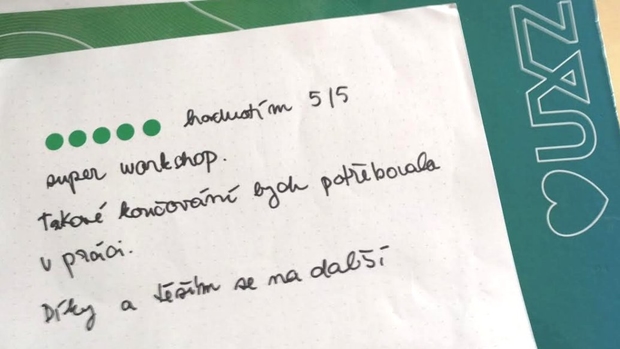 hodnotím 5/5
super workshop.
Takové koučování bych potřebovala
v práci.
Díky a těším se na další